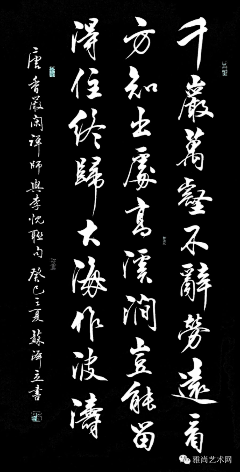 千巖萬壑不辭勞遠看
方知出處高溪澗豈能留
得住終歸大海作波濤
唐香嚴閑禪師與李忱聯句 癸巳之夏 蘇澤立書
雅尚艺术网